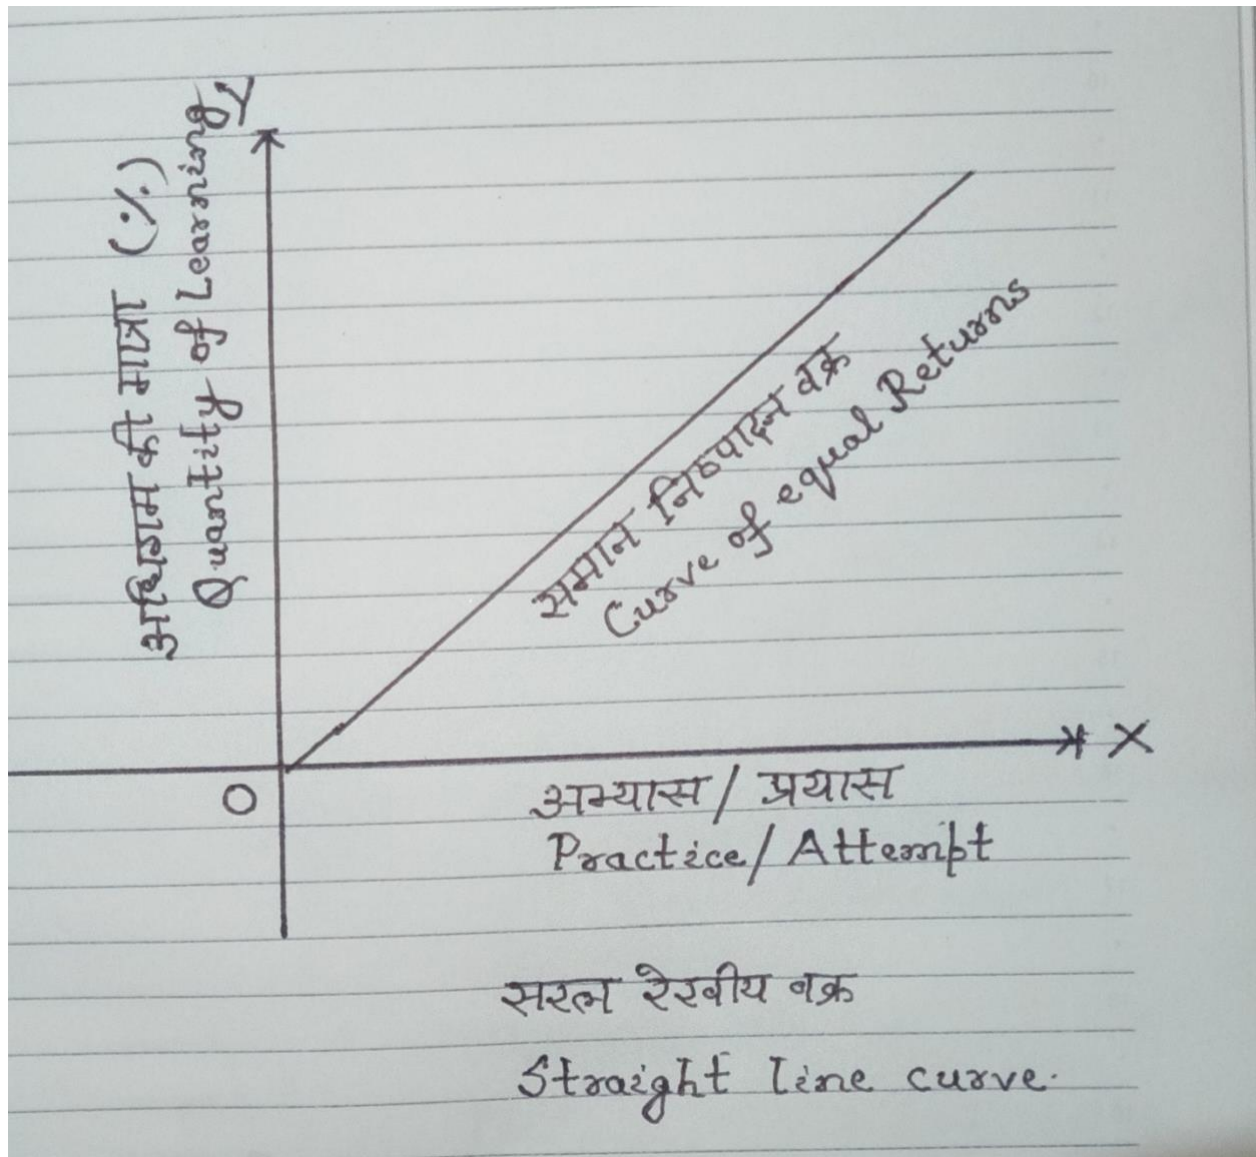 Y
अधिगम की मात्रा (%)
Quantity of Learning
समान निष्पादन वक्र
Curve of equal Returns
X
O
अभ्यास / प्रयास
Practice / Attempt
सरल रेखीय वक्र
Straight line curve.